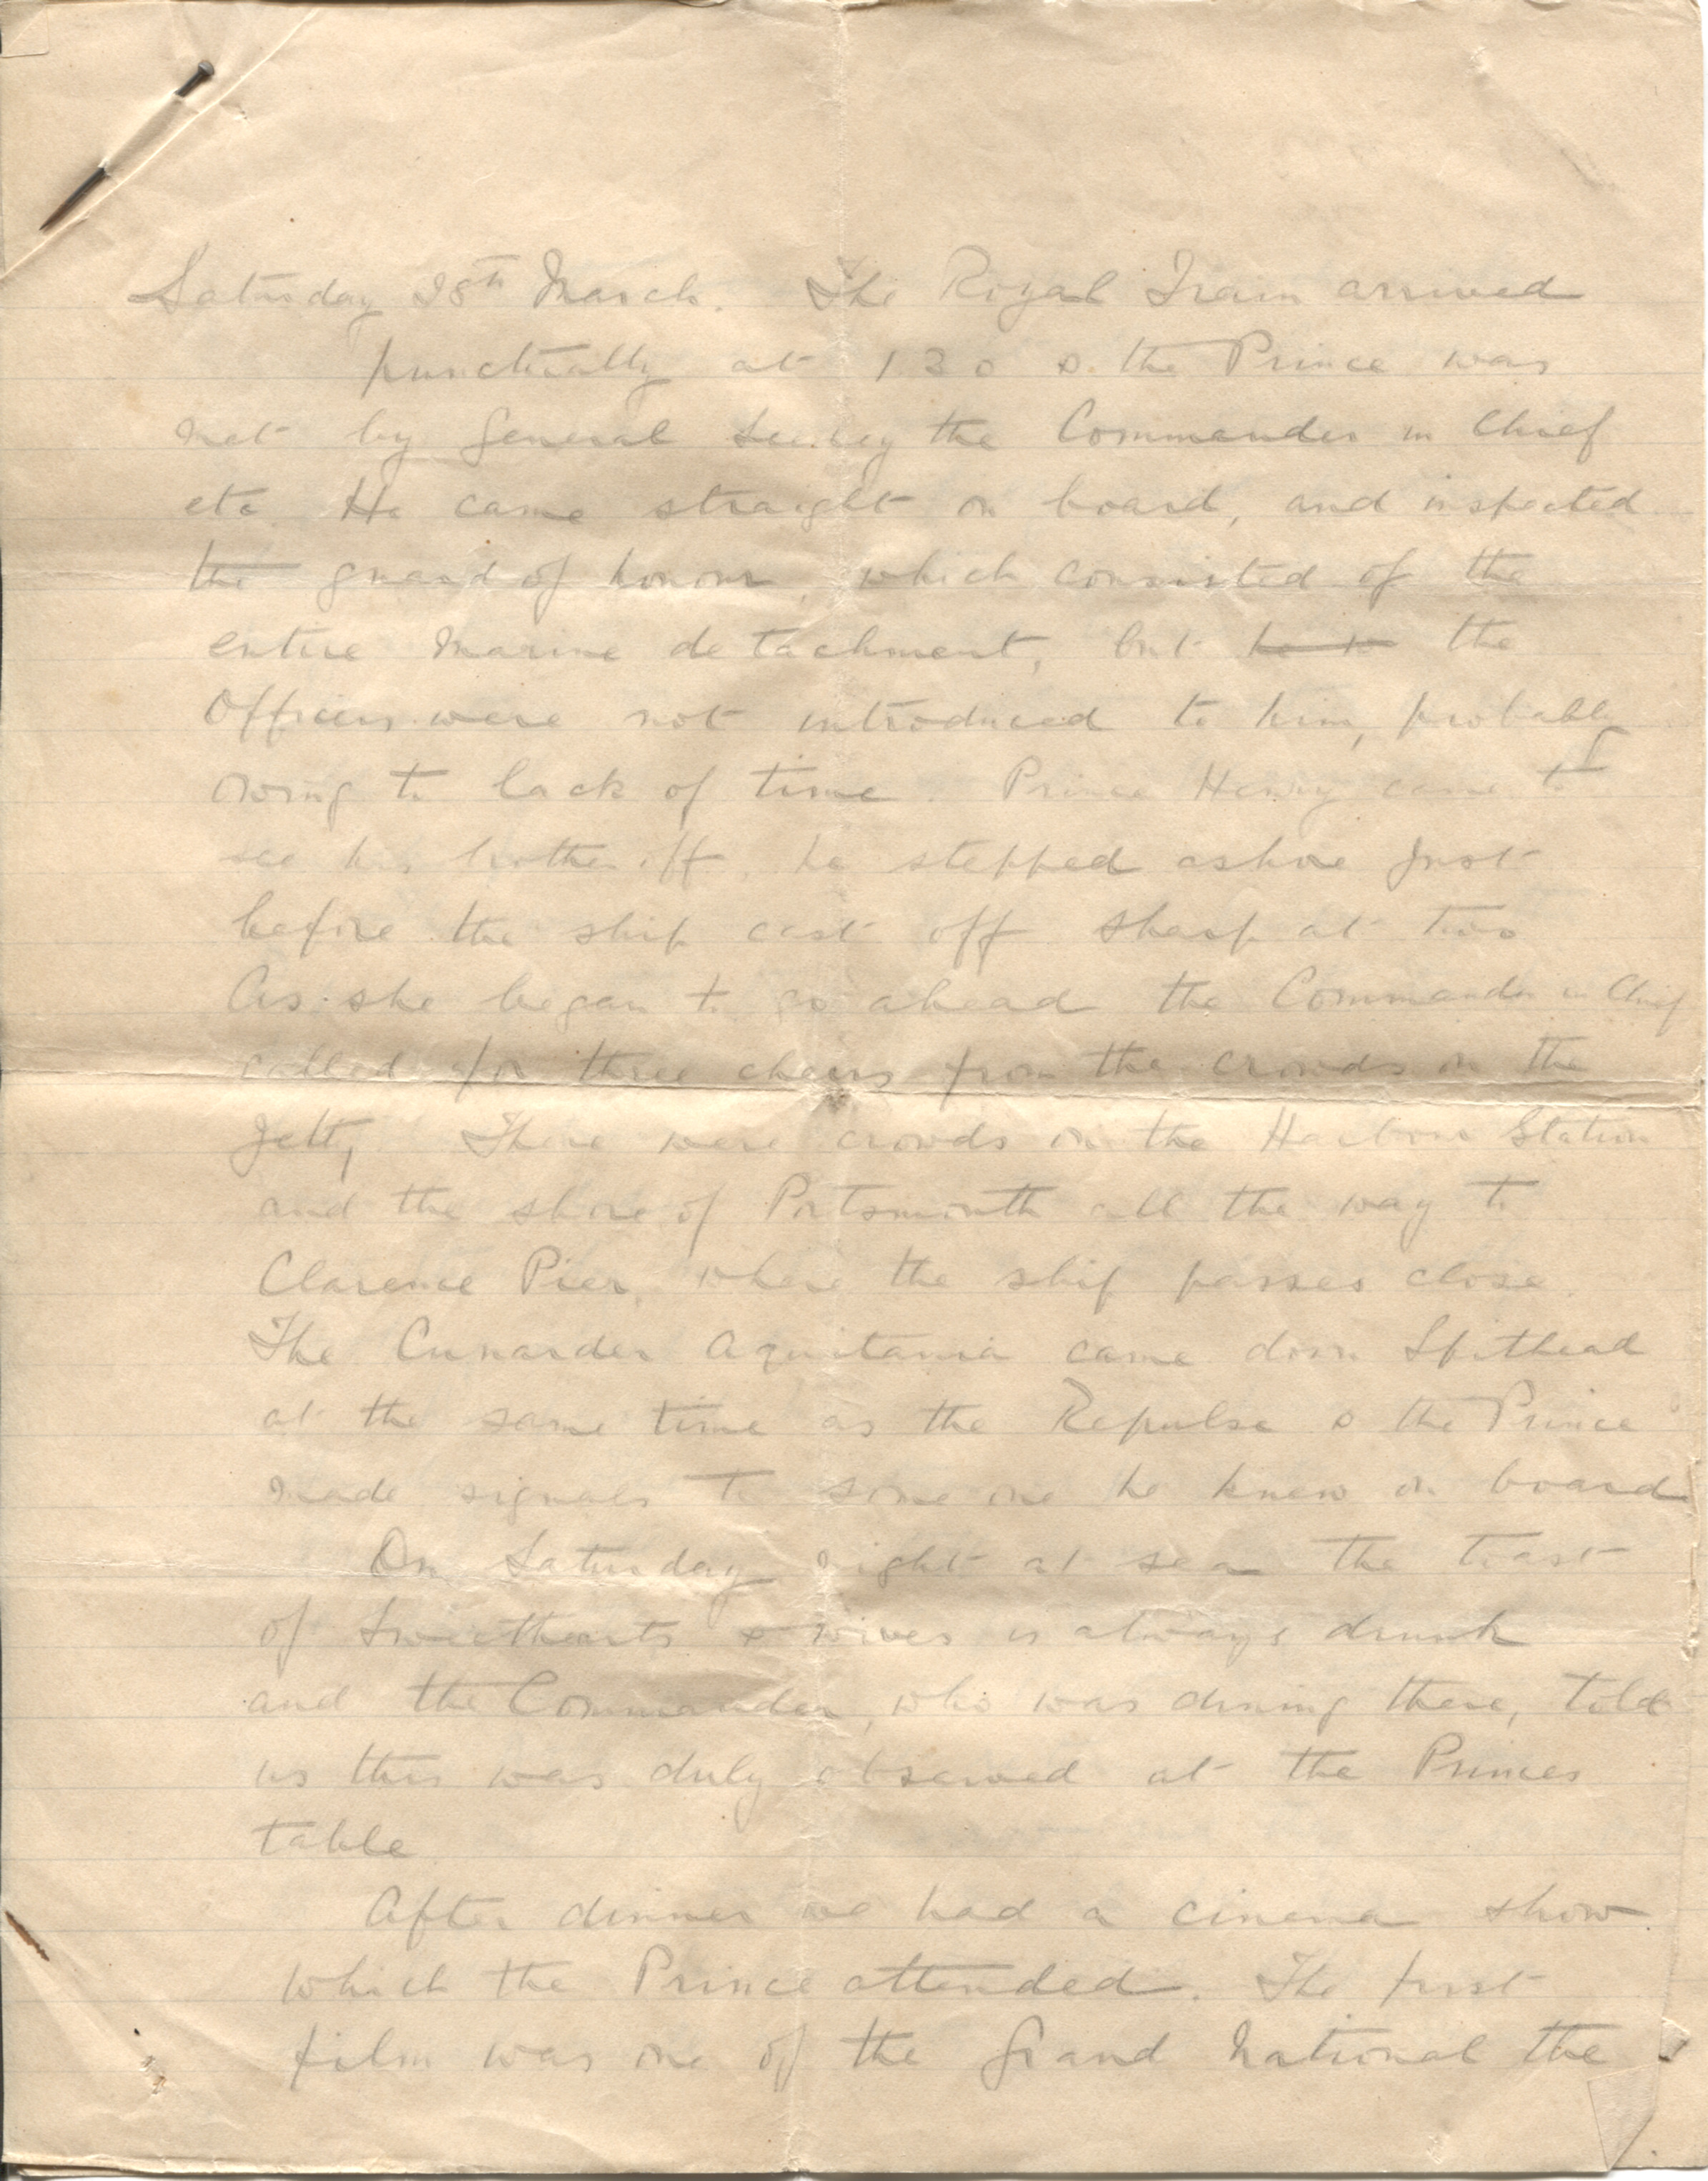 Saturday 28th March. The Royal Train arrived
punctually at 1 30 & the Prince was
met by General Seeley the Commander in Chief
etc He came straight on board, and inspected
the guard of honour, which consisted of the
entire Marine detachment, but the
Officers were not introduced to him, probably
owing to lack of time. Prince Henry came to
see his brother off, he stepped ashore just
before the ship cast off sharp at two
As she began to go ahead the Commander in Chief
called for three cheers from the crowds on the
Jetty. There were crowds on the Harbour Station
and the shore of Portsmouth all the way to
Clarence Pier, where the ship passes close.
The Cunarder Aquitania came down Spithead
at the same time as the Repulse & the Prince
made signals to some one he knew on board
On Saturday night at sea the toast
of Sweethearts & wives is always drunk
and the Commander, who was dining there, told
us this was duly observed at the Princes
table
After dinner we had a cinema show
which the Prince attended. The first
film was one of the Grand National the